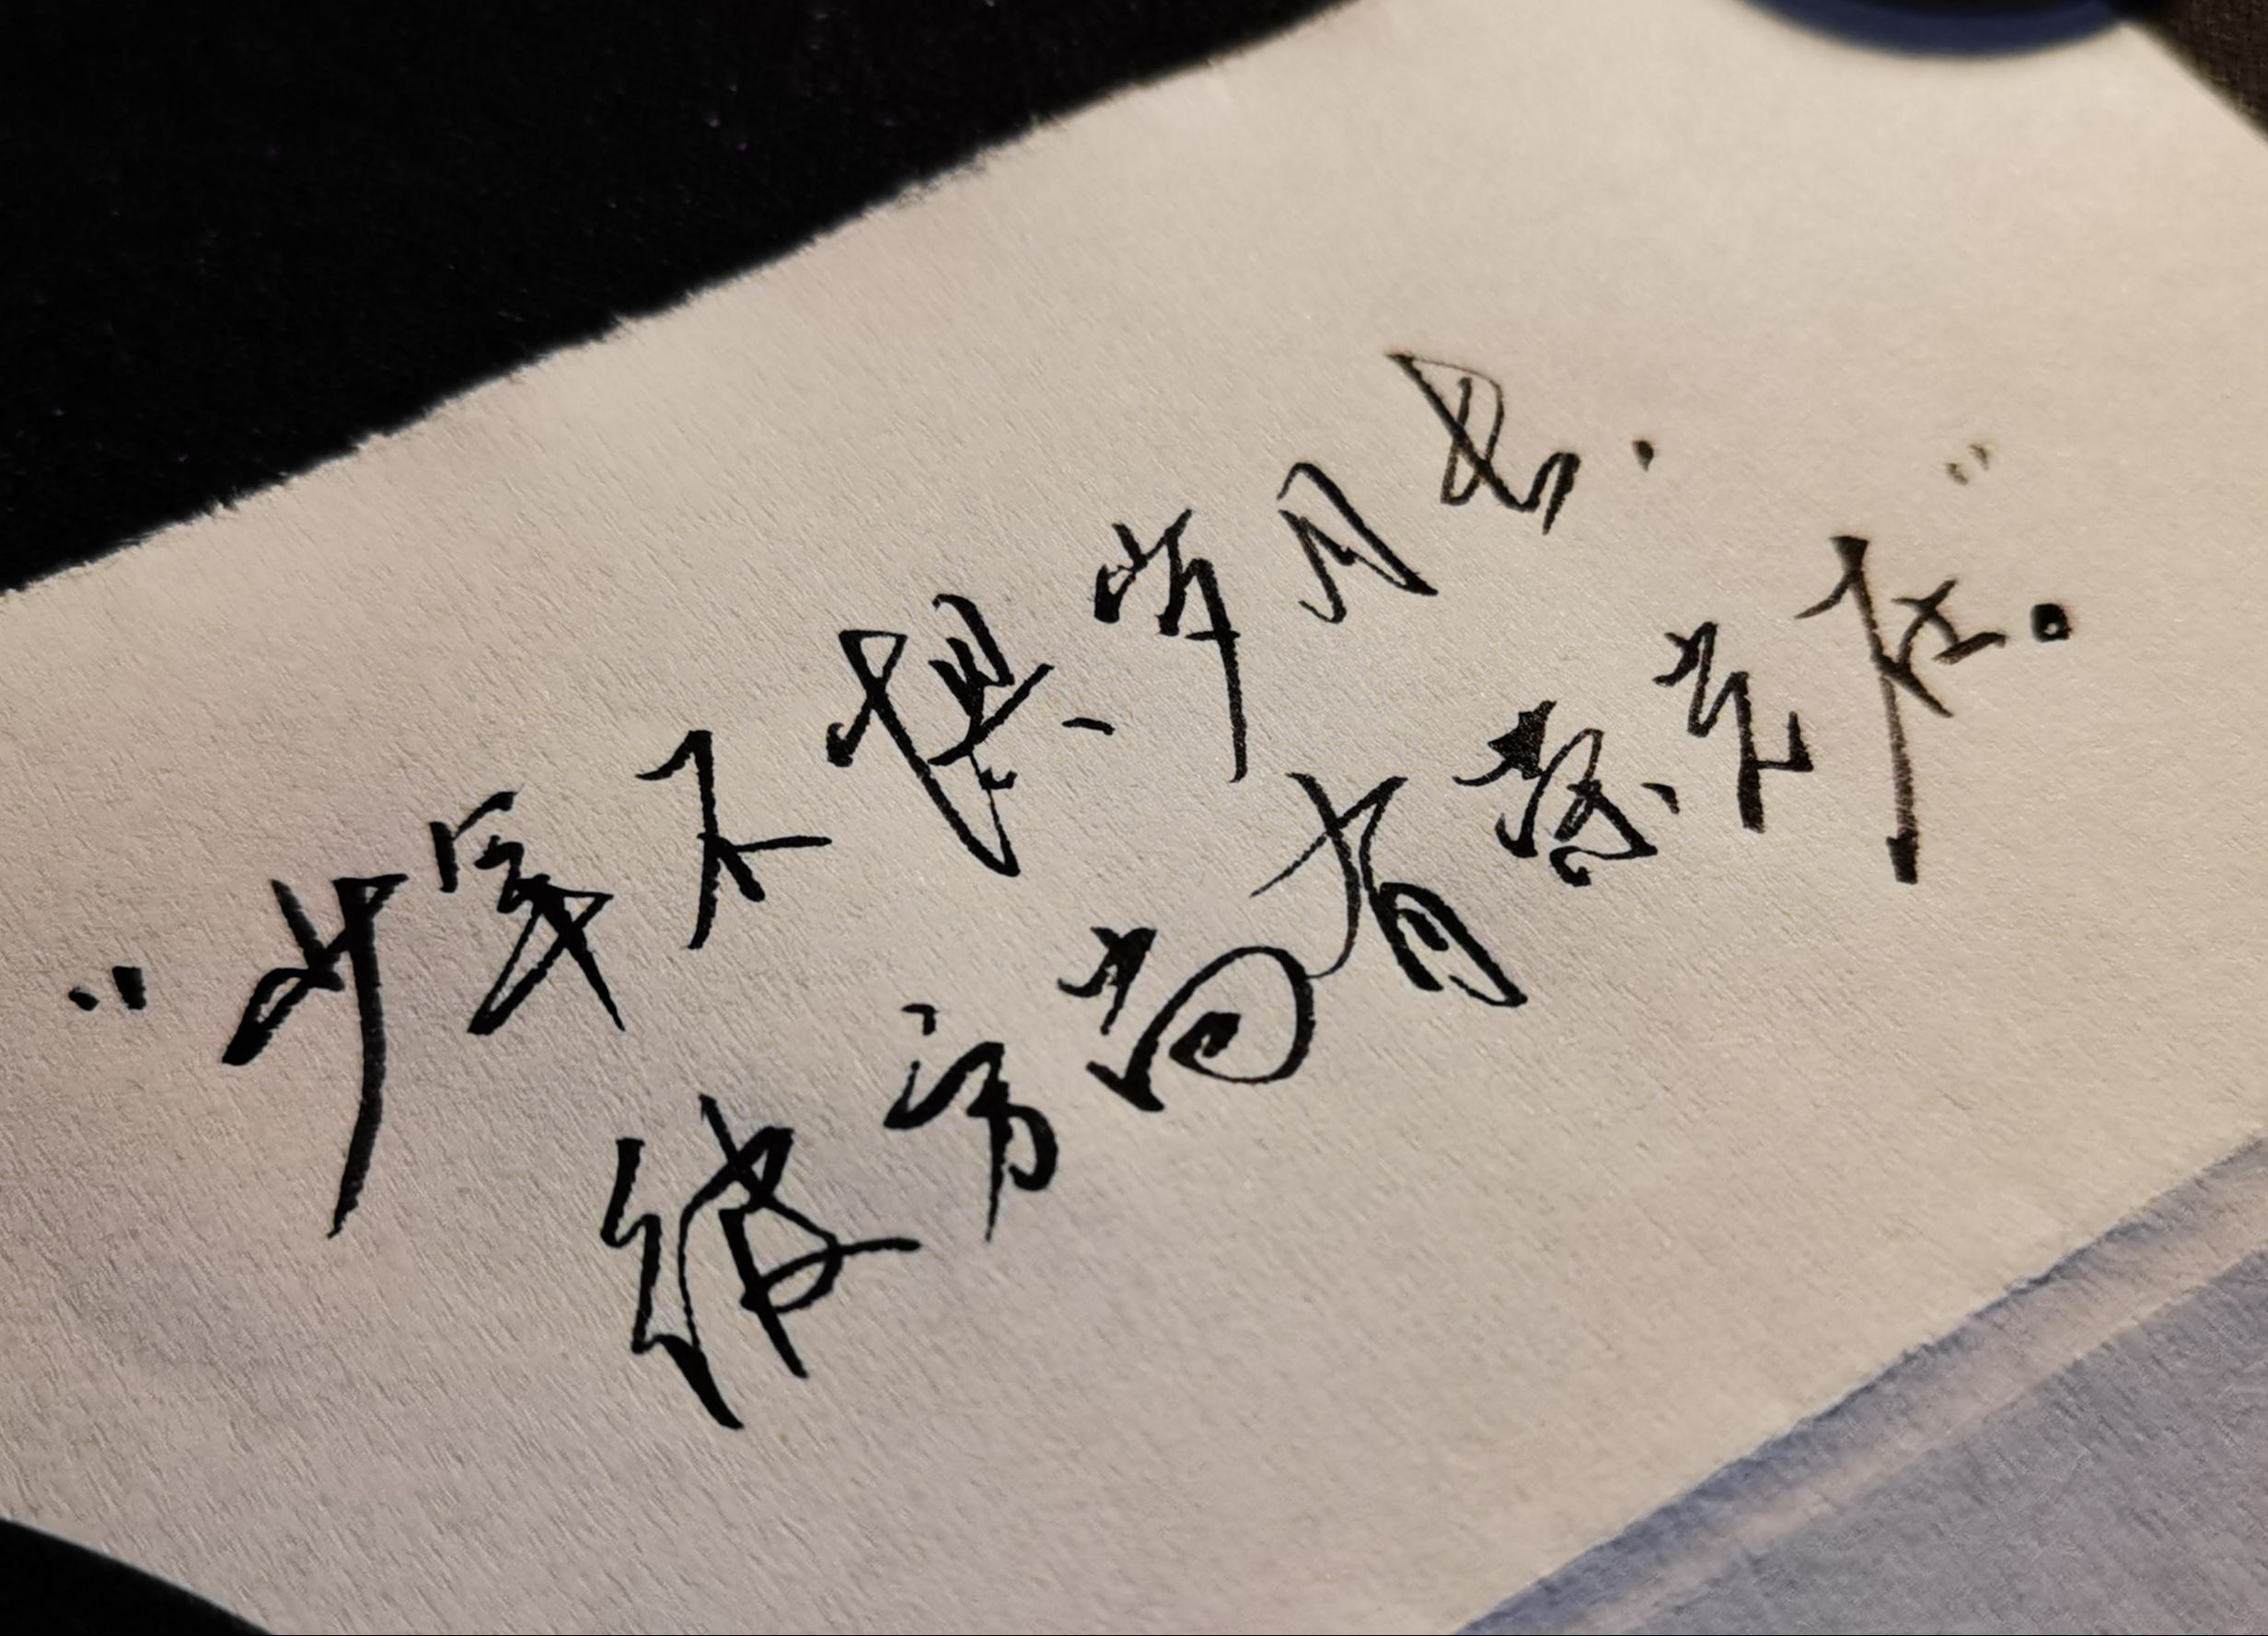 “少年不惧岁月长，
彼方尚有荣光在。”